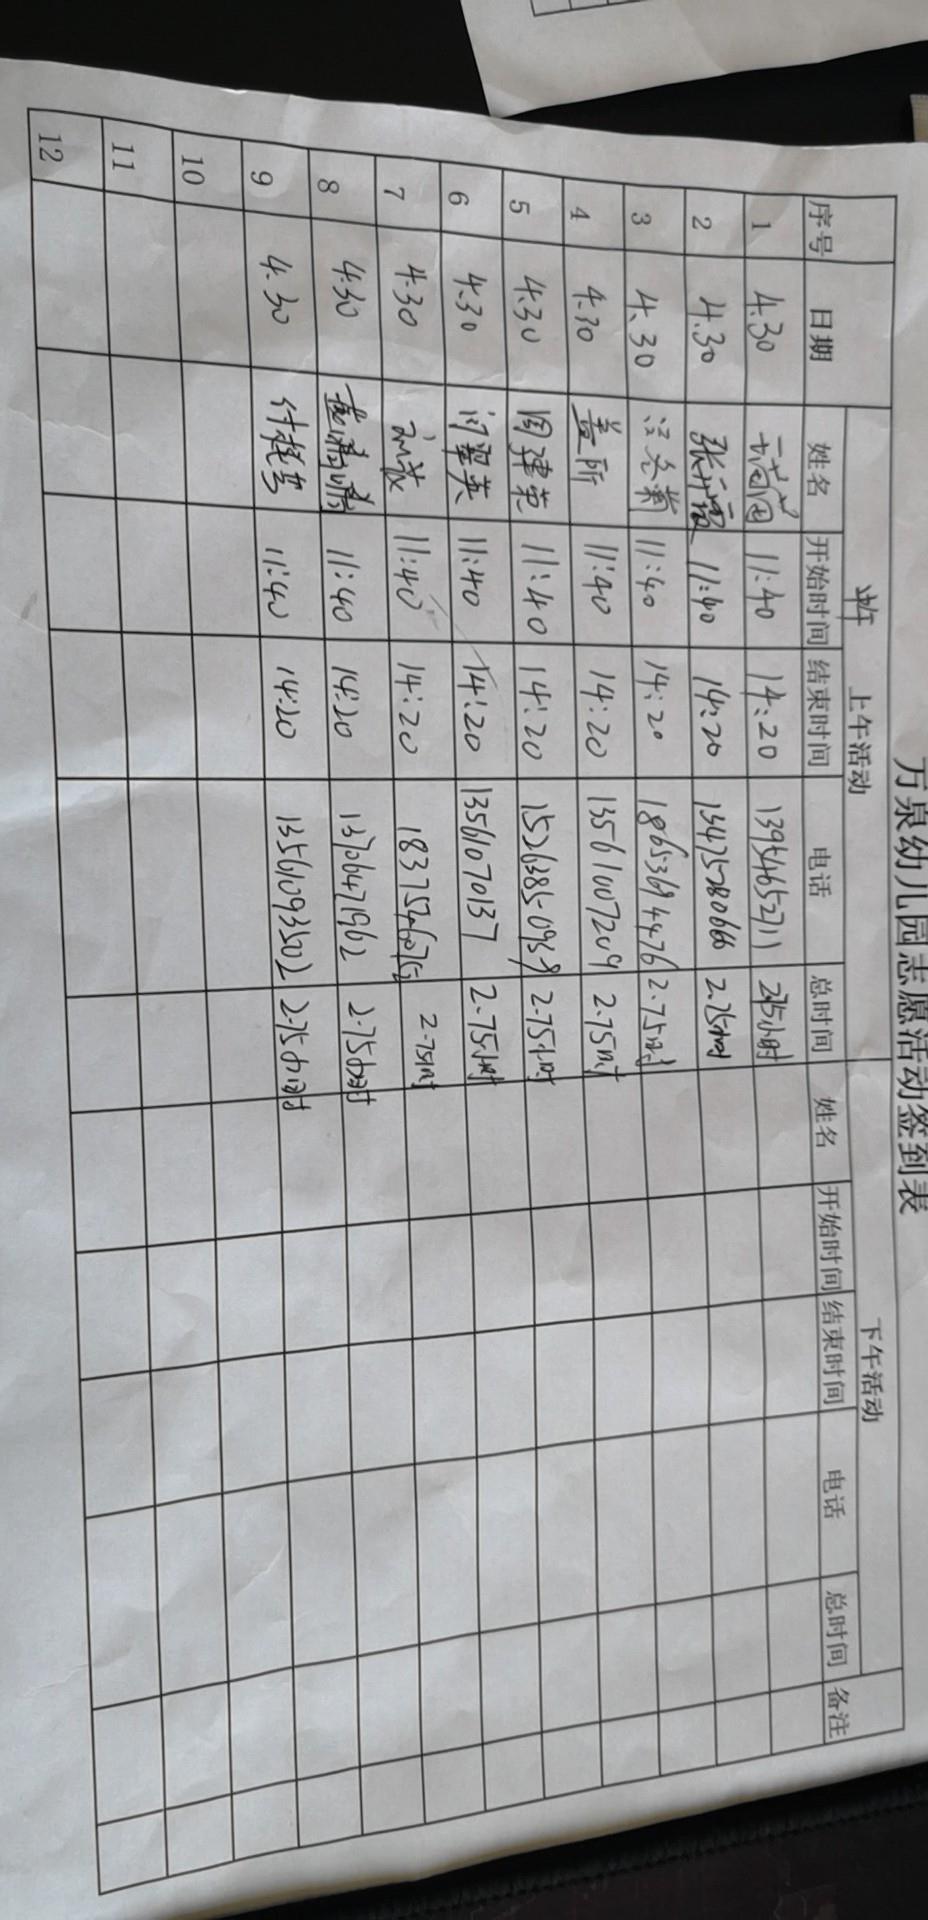 万泉幼儿园志愿活动签到表
上午活动 下午活动
序号 日期 姓名 开始时间 结束时间 电话 总时间 姓名 开始时间 结束时间 电话 总时间 备注
1 4.30 11:40 14:20 13954652711 2.75小时
2 4.30 11:40 14:20 13475280666 2.75小时
3 4.30 11:40 14:20 18653694476 2.75小时
4 4.30 盖所 11:40 14:20 13561007209 2.75小时
5 4.30 周建英 11:40 14:20 15263850939 2.75小时
6 4.30 闫翠英 11:40 14:20 13561070137 2.75小时
7 4.30 11:40 14:20 2.75小时
8 4.30 11:40 14:20 13706471962 2.75小时
9 4.30 付桂雪 11:40 14:20 13561093502 2.75小时
10
11
12